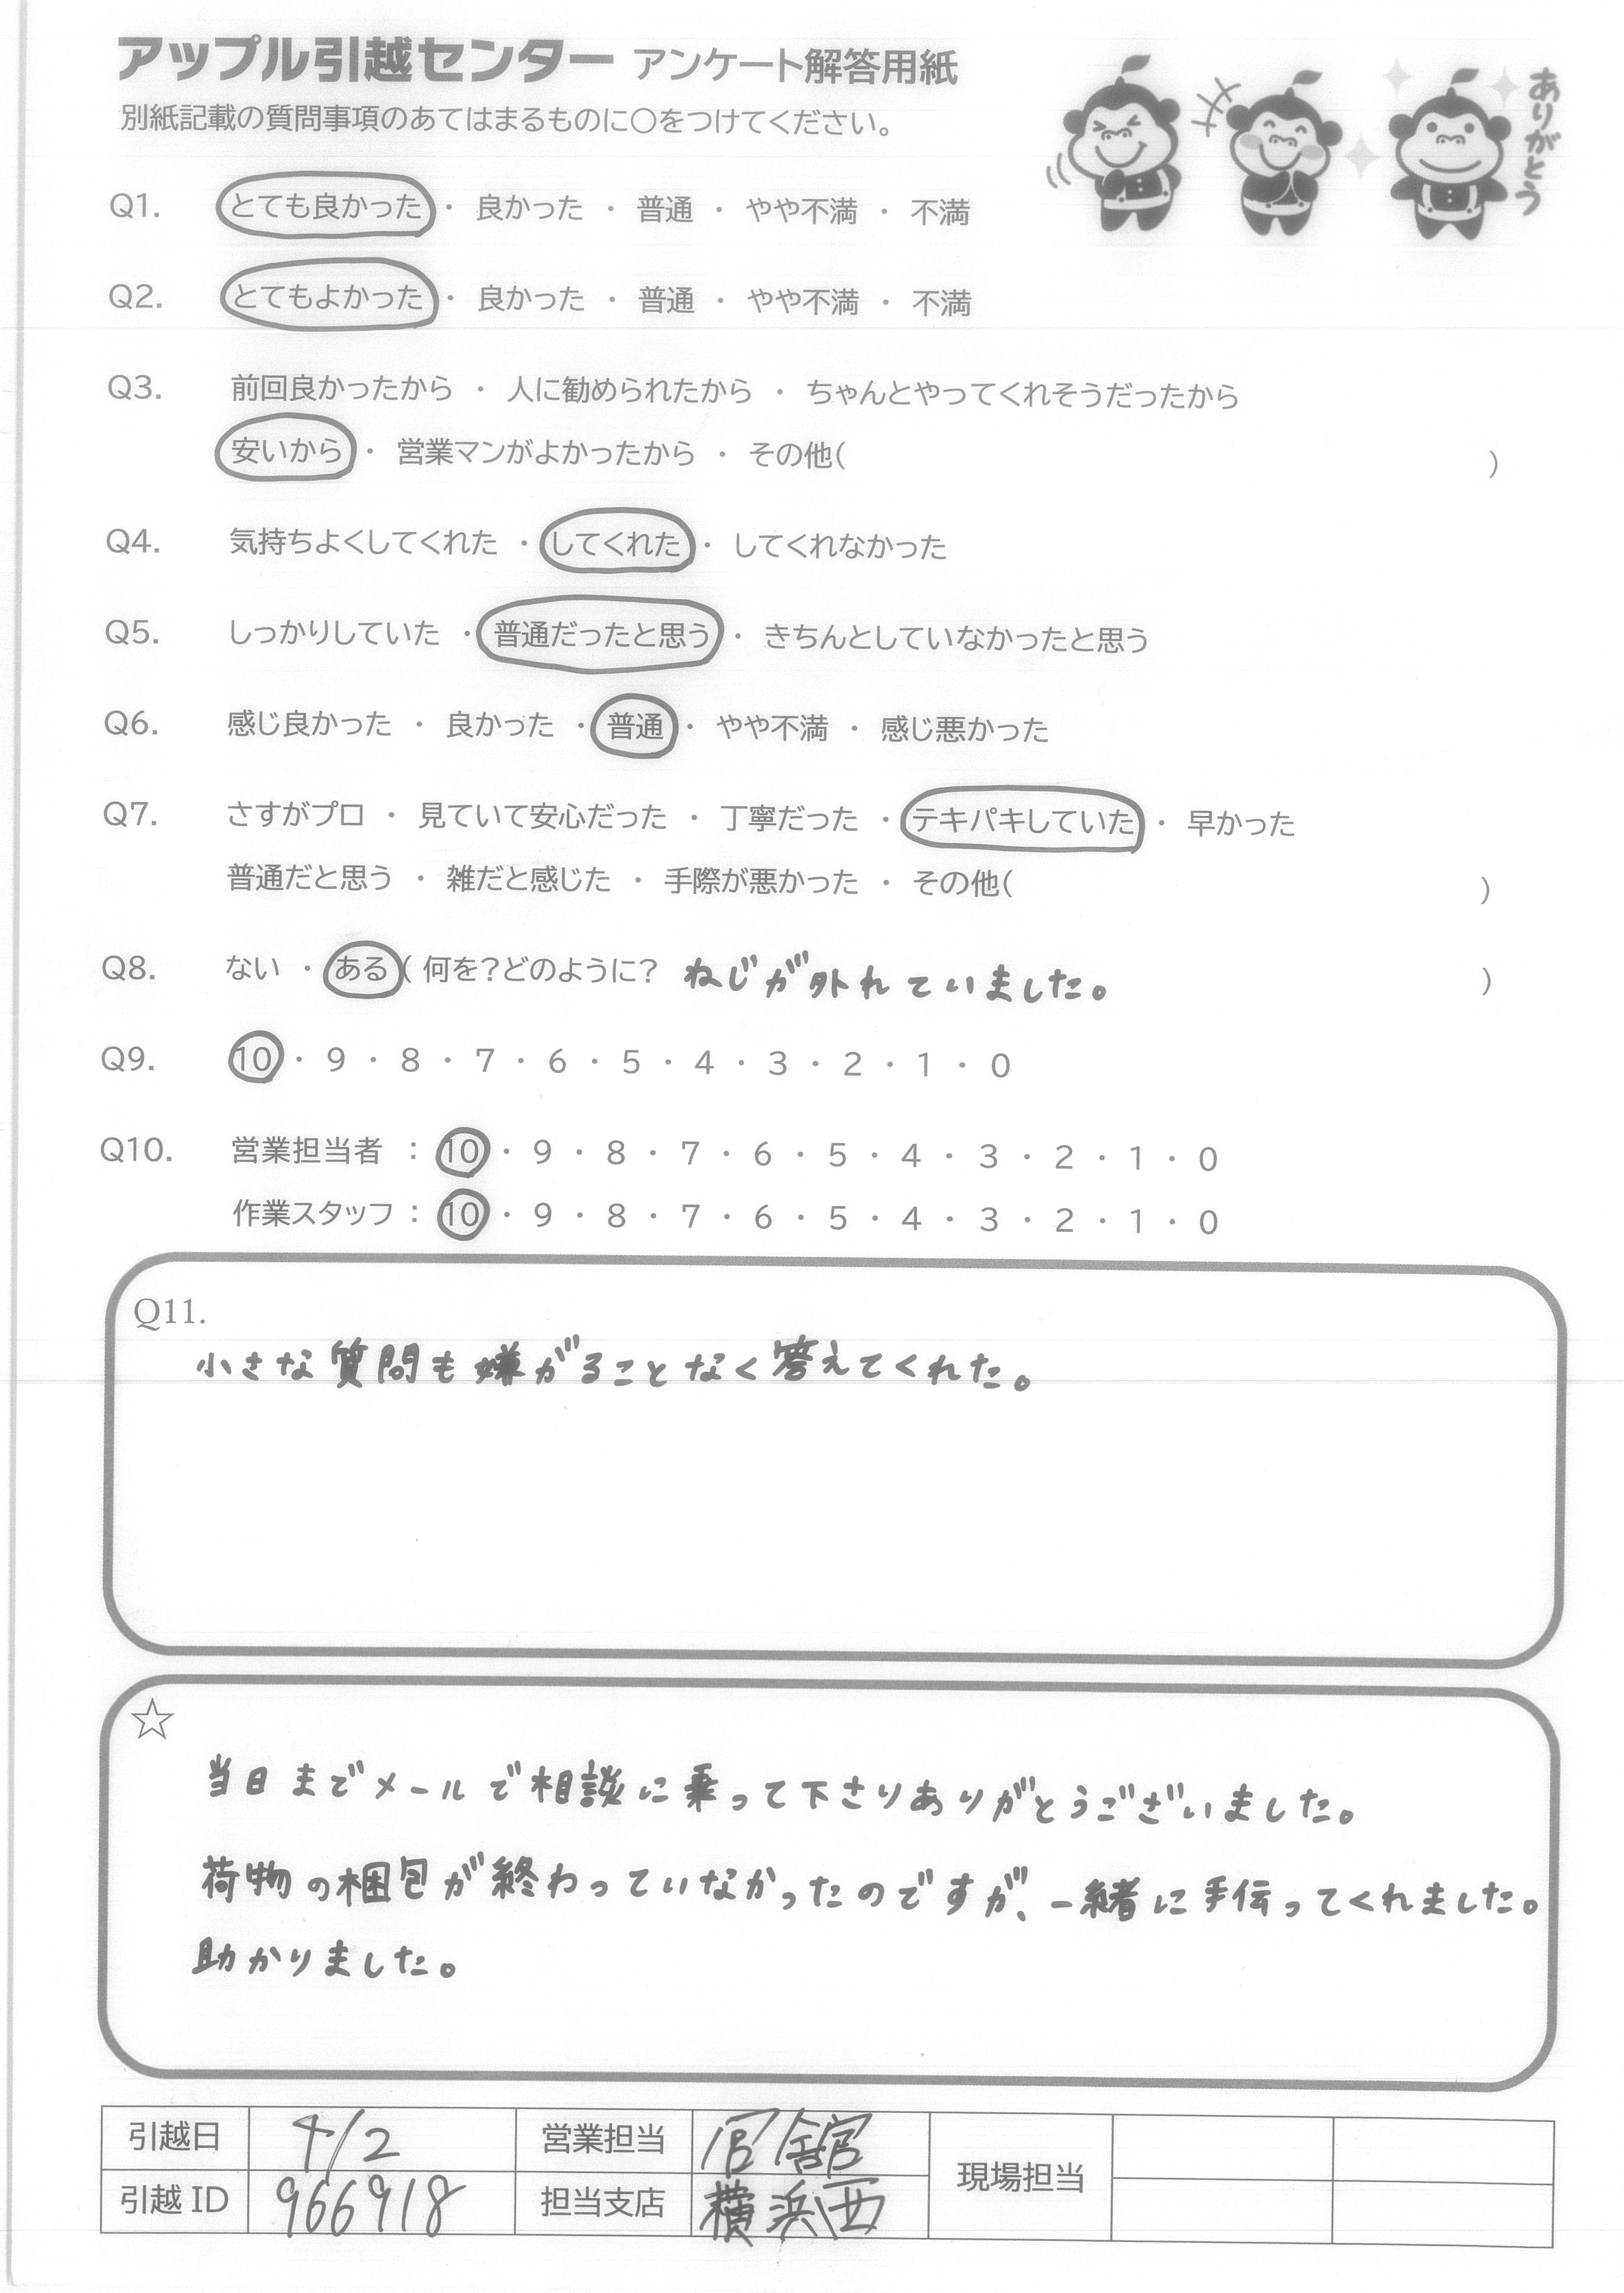 アップル引越センター アンケート解答用紙
別紙記載の質問事項のあてはまるものに○をつけてください。
ありがとう
Q1. とても良かった ・ 良かった ・ 普通 ・ やや不満 ・ 不満
Q2. とてもよかった ・ 良かった ・ 普通 ・ やや不満 ・ 不満
Q3. 前回良かったから ・ 人に勧められたから ・ ちゃんとやってくれそうだったから
安いから ・ 営業マンがよかったから ・ その他( )
Q4. 気持ちよくしてくれた ・ してくれた ・ してくれなかった
Q5. しっかりしていた ・ 普通だったと思う ・ きちんとしていなかったと思う
Q6. 感じ良かった ・ 良かった ・ 普通 ・ やや不満 ・ 感じ悪かった
Q7. さすがプロ ・ 見ていて安心だった ・ 丁寧だった ・ テキパキしていた ・ 早かった
普通だと思う ・ 雑だと感じた ・ 手際が悪かった ・ その他( )
Q8. ない ・ ある ( 何を?どのように? ねじが外れていました。 )
Q9. 10 ・ 9 ・ 8 ・ 7 ・ 6 ・ 5 ・ 4 ・ 3 ・ 2 ・ 1 ・ 0
Q10. 営業担当者 : 10 ・ 9 ・ 8 ・ 7 ・ 6 ・ 5 ・ 4 ・ 3 ・ 2 ・ 1 ・ 0
作業スタッフ : 10 ・ 9 ・ 8 ・ 7 ・ 6 ・ 5 ・ 4 ・ 3 ・ 2 ・ 1 ・ 0
Q11.
小さな質問も嫌がることなく答えてくれた。
☆
当日までメールで相談に乗って下さりありがとうございました。
荷物の梱包が終わっていなかったのですが、一緒に手伝ってくれました。
助かりました。
引越日 4/2 営業担当 現場担当
引越ID 966918 担当支店 横浜西